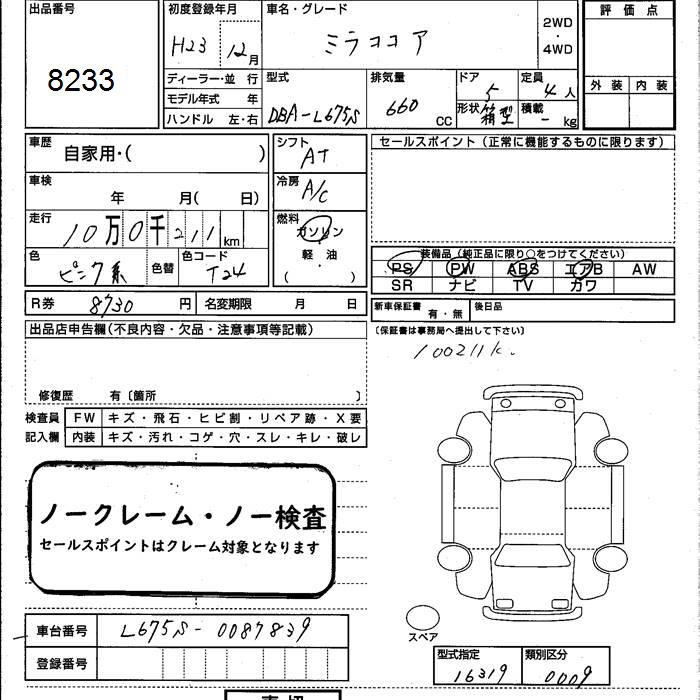 出品番号
8233
初度登録年月
H23 12月
車名・グレード
ミラココア
2WD
・
4WD
評価点
外装 内装
ディーラー・並 行
モデル年式 年
ハンドル 左・右
型式
DBA-L675S
排気量
660 CC
ドア
5
定員
4人
形状 箱型
積載
- kg
車歴
自家用・( )
車検
年 月( 日)
走行
10万0千211km
色
ピンク系
色替
色コード
T24
シフト
AT
冷房
A/C
燃料
ガソリン
・
軽・油
( )
セールスポイント(正常に機能するものに限ります)
装備品(純正品に限り○をつけてください)
PS PW ABS エアB AW
SR ナビ TV カワ
R券 8730円 名変期限 月 日
新車保証書 有・無 後日品
(保証書は事務局へ提出して下さい)
100211k.
出品店申告欄(不良内容・欠品・注意事項等記載)
修復歴 有〔箇所 〕
検査員 FW キズ・飛石・ヒビ割・リペア跡・X要
記入欄 内装 キズ・汚れ・コゲ・穴・スレ・キレ・破レ
ノークレーム・ノー検査
セールスポイントはクレーム対象となります
スペア
車台番号 L675S-0087839
登録番号
型式指定
16319
類別区分
0009